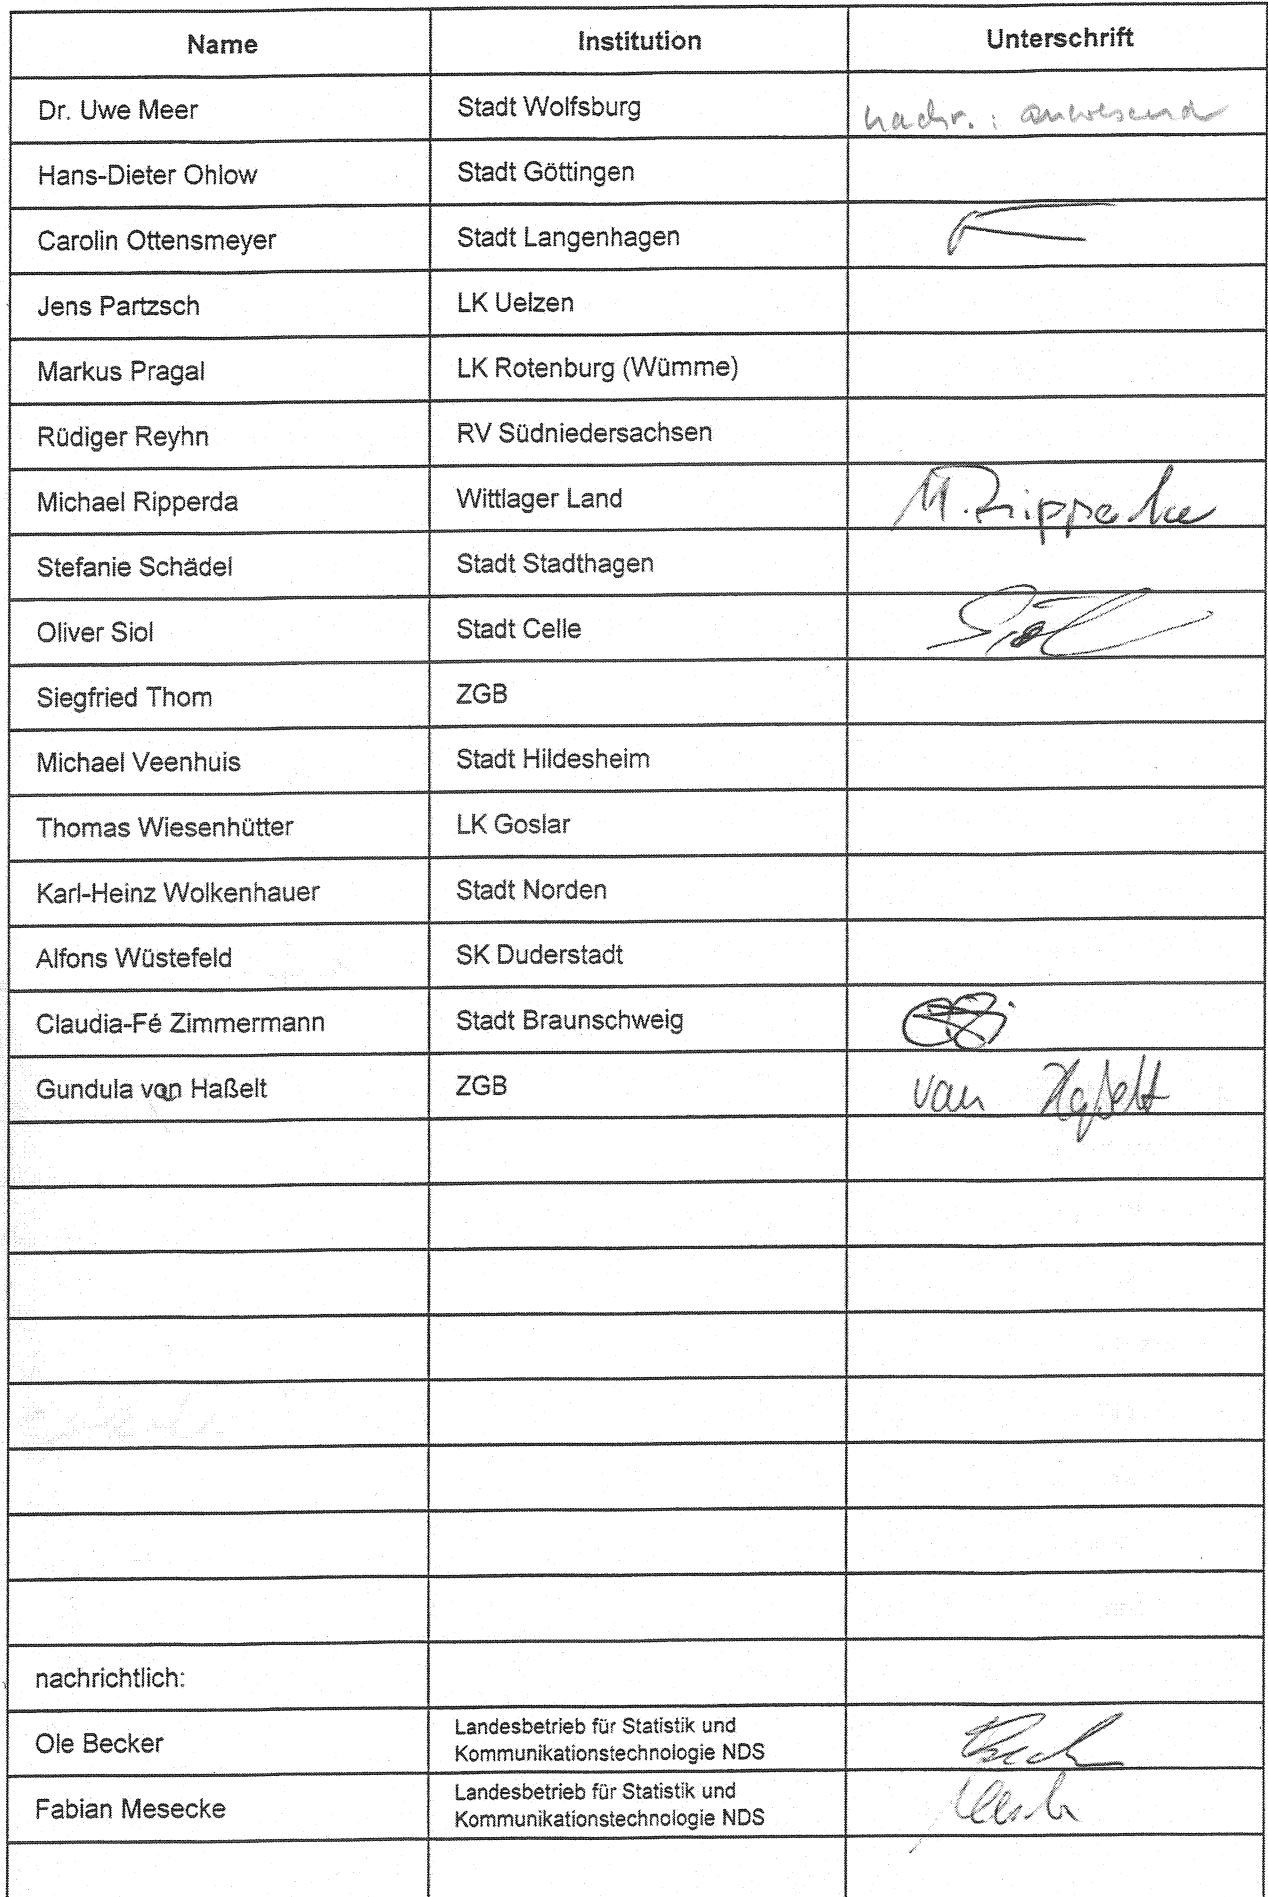 Name Institution Unterschrift
Dr. Uwe Meer Stadt Wolfsburg nachr.: anwesend
Hans-Dieter Ohlow Stadt Göttingen
Carolin Ottensmeyer Stadt Langenhagen
Jens Partzsch LK Uelzen
Markus Pragal LK Rotenburg (Wümme)
Rüdiger Reyhn RV Südniedersachsen
Michael Ripperda Wittlager Land M. Ripperda
Stefanie Schädel Stadt Stadthagen
Oliver Siol Stadt Celle Siol
Siegfried Thom ZGB
Michael Veenhuis Stadt Hildesheim
Thomas Wiesenhütter LK Goslar
Karl-Heinz Wolkenhauer Stadt Norden
Alfons Wüstefeld SK Duderstadt
Claudia-Fé Zimmermann Stadt Braunschweig
Gundula van Haßelt ZGB van Haßelt
nachrichtlich:
Ole Becker Landesbetrieb für Statistik und
Kommunikationstechnologie NDS
Fabian Mesecke Landesbetrieb für Statistik und
Kommunikationstechnologie NDS